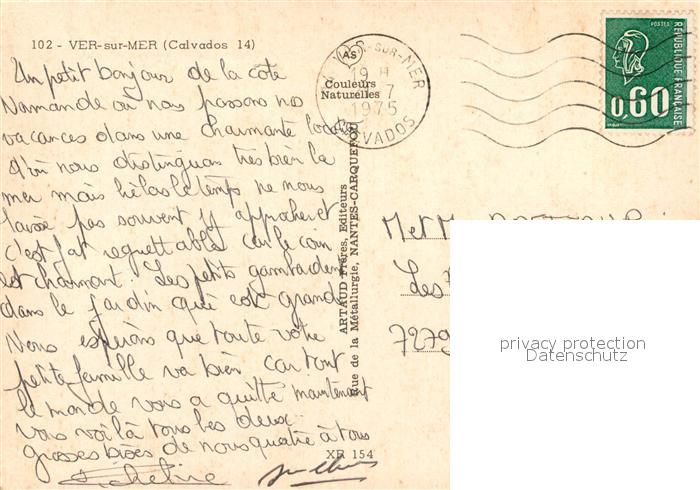 102 - VER-sur-MER (Calvados 14)
Un petit bonjour de la côte
Normande où nous passons nos
vacances dans une charmante
d'où nous distinguons très bien la
mer mais hélas le temps ne nous
laisse pas souvent y approcher et
c'est fat regrettable car le coin
est charmant. Les petits gambadent
dans le jardin qui est grand
Nous espérons que toute votre
petite famille va bien car tout
le monde vous a quitté maintenant
vous voilà tous les deux.
grosses bises de nous quatre à tous
VER-SUR-MER
19 H
7
1975
CALVADOS
AS
Couleurs
Naturelles
ARTAUD Frères, Editeurs
Rue de la Métallurgie, NANTES-CARQUEFOU
XR 154
POSTES
RÉPUBLIQUE FRANÇAISE
0,60
M et M
Les
7279
privacy protection
Datenschutz